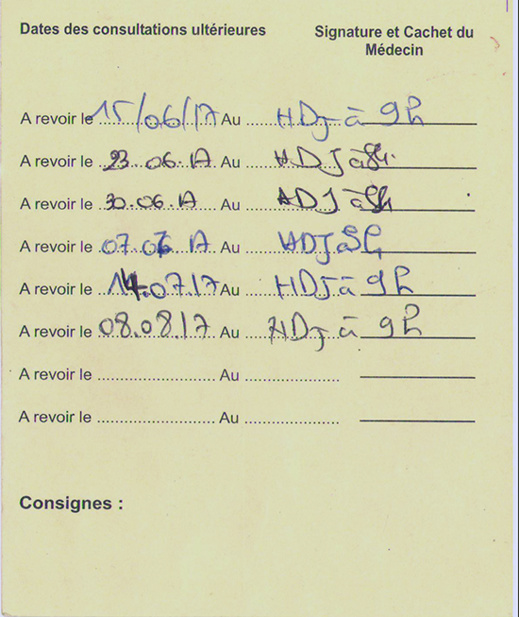 Dates des consultations ultérieures
Signature et Cachet du
Médecin
A revoir le 15/06/17 Au HDJ à 9h
A revoir le 23.06.17 Au HDJ à
A revoir le 30.06.17 Au HDJ à
A revoir le 07.07 17 Au HDJ
A revoir le 14.07.17 Au HDJ à 9h
A revoir le 08.08.17 Au HDJ à 9h
A revoir le ............................ Au ......................
A revoir le ............................ Au ......................
Consignes :